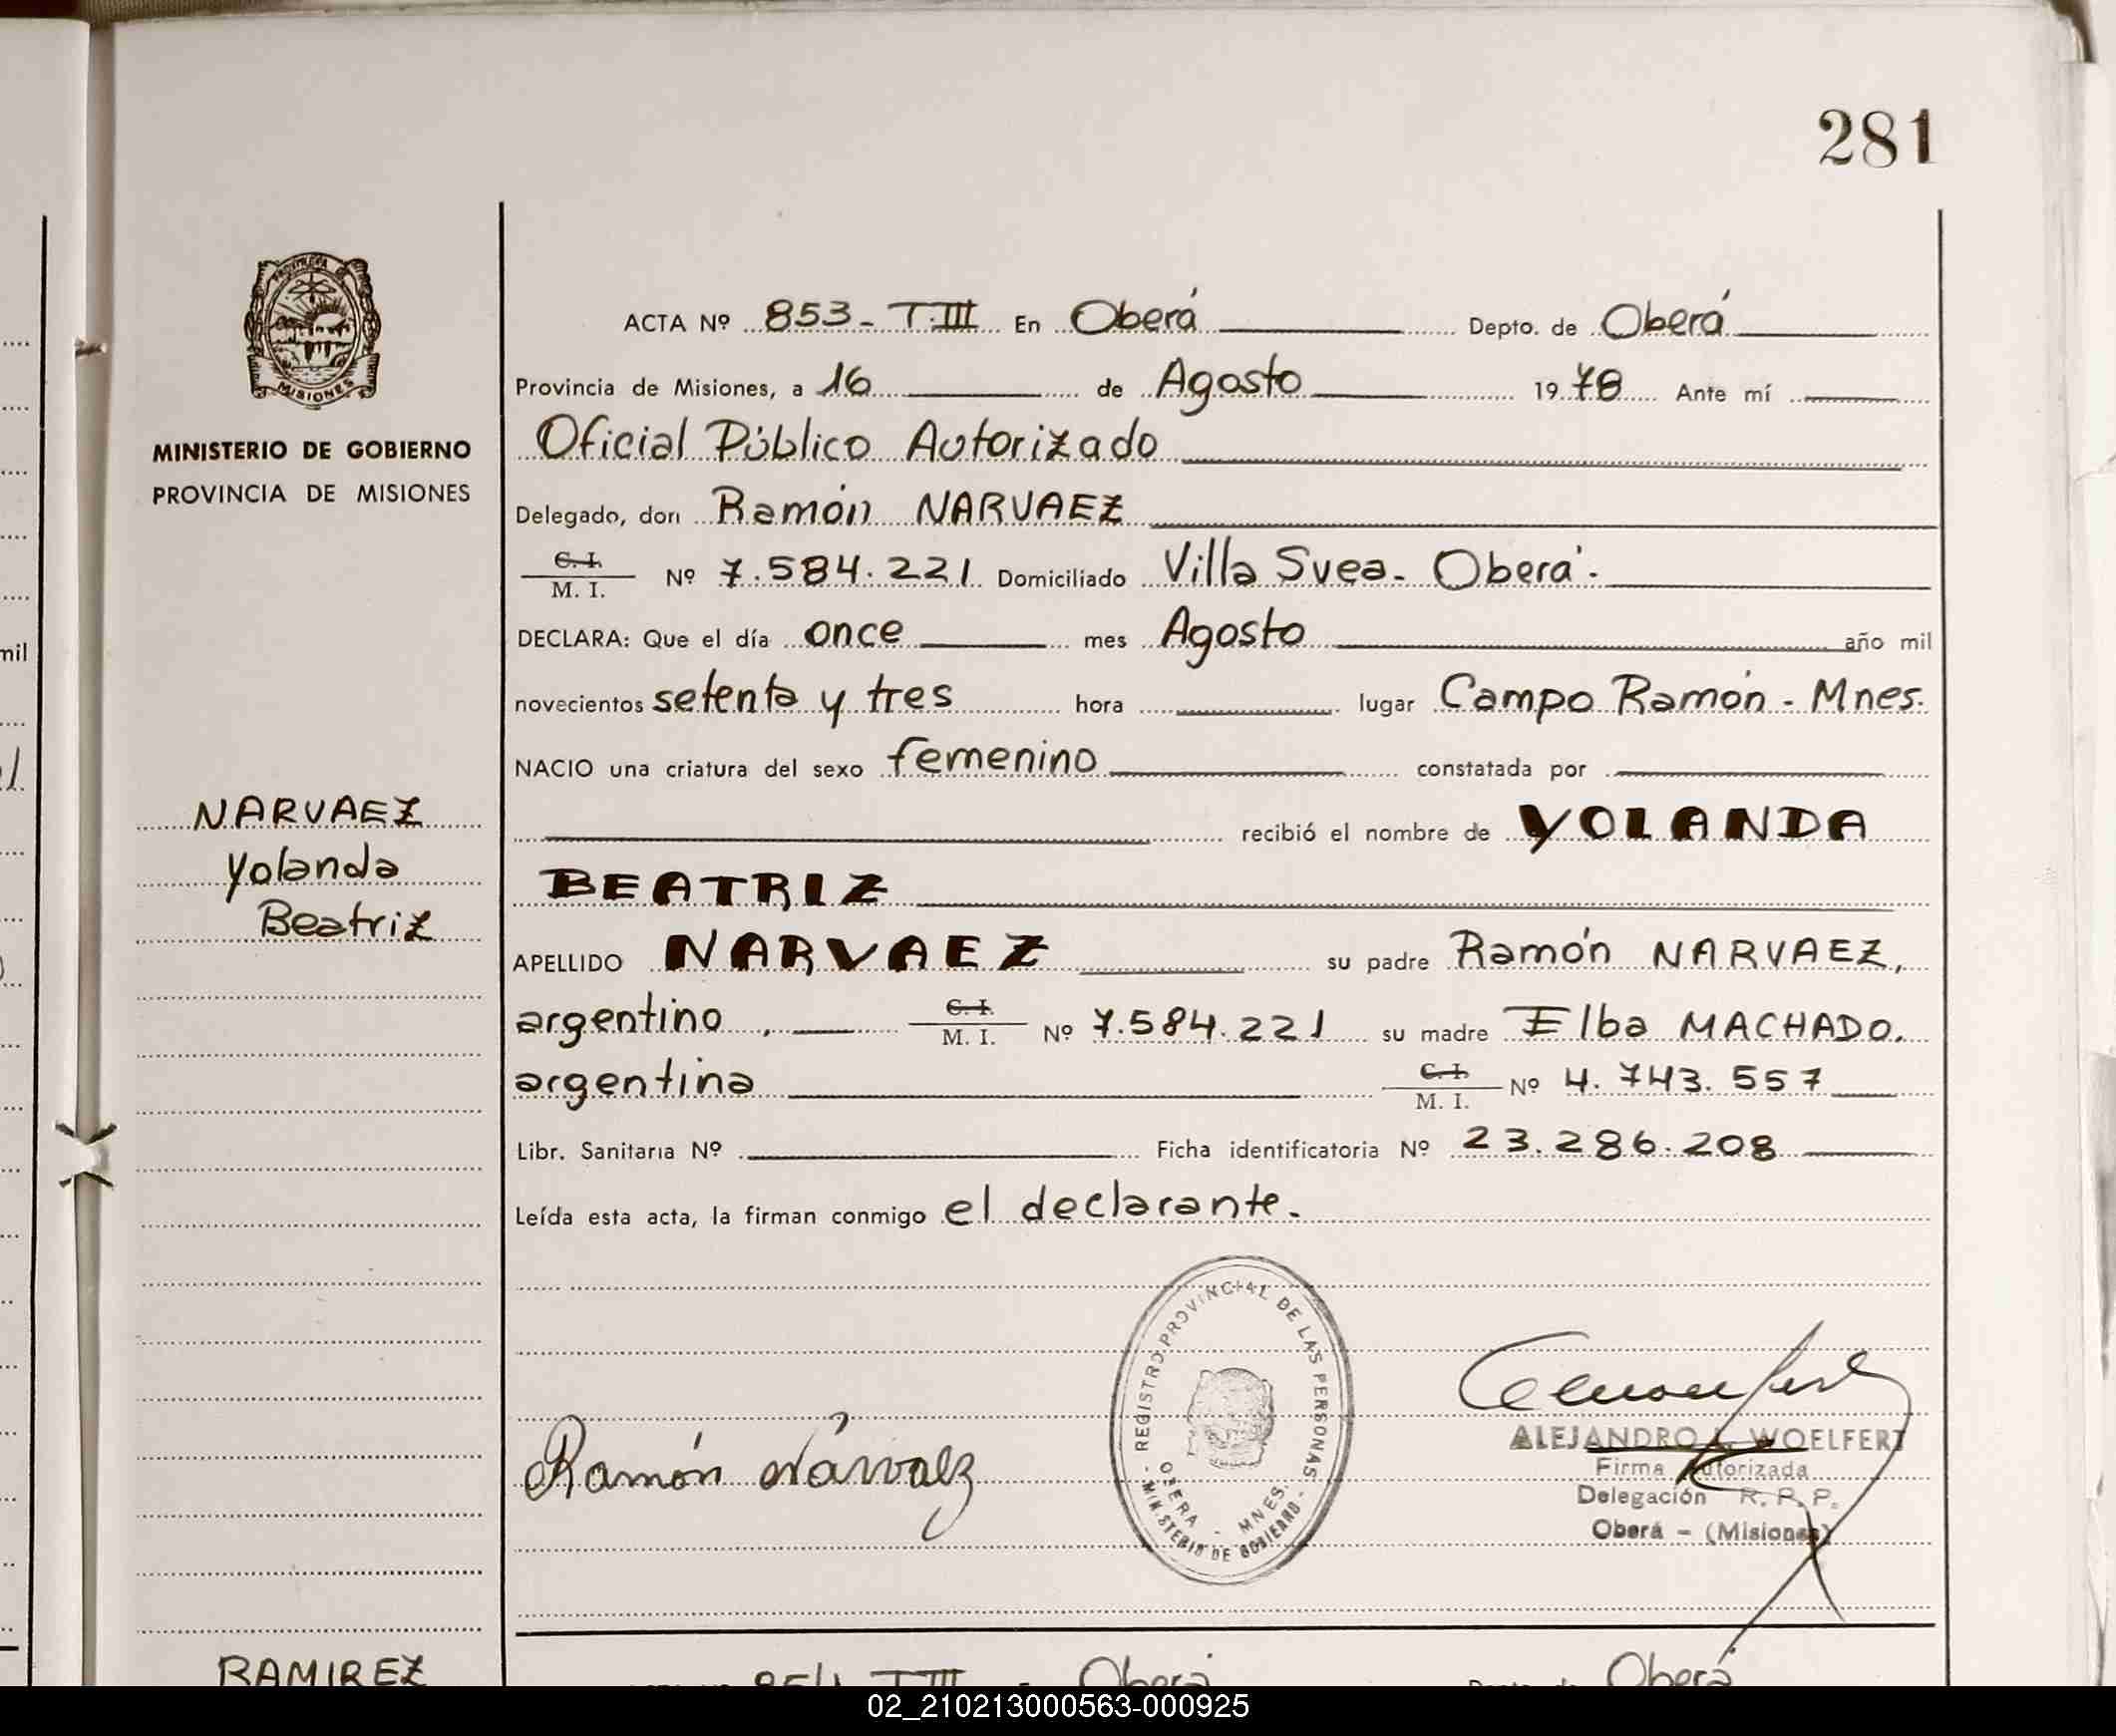 281
ACTA Nº 853 - T.III En Oberá Depto. de Oberá
Provincia de Misiones, a 16 de Agosto 1978 Ante mí
Oficial Público Autorizado
Delegado, don Ramón NARVAEZ
C. I.
M. I. Nº 7.584.221 Domiciliado Villa Svea - Oberá -
DECLARA: Que el día once mes Agosto año mil
novecientos setenta y tres hora lugar Campo Ramón - Mnes.
NACIO una criatura del sexo femenino constatada por
recibió el nombre de YOLANDA
BEATRIZ
APELLIDO NARVAEZ su padre Ramón NARVAEZ,
argentino, C. I.
M. I. Nº 7.584.221 su madre Elba MACHADO,
argentina C. I.
M. I. Nº 4.743.557
Libr. Sanitaria Nº Ficha identificatoria Nº 23.286.208
Leída esta acta, la firman conmigo el declarante.
MISIONES
MINISTERIO DE GOBIERNO
PROVINCIA DE MISIONES
NARVAEZ
Yolanda
Beatriz
Ramón Narvaez
REGISTRO PROVINCIAL DE LAS PERSONAS -
MINISTERIO DE GOBIERNO -
OBERA - MNES.
ALEJANDRO L. WOELFERT
Firma Autorizada
Delegación R. P. P.
Oberá - (Misiones)
RAMIREZ
854 T III Oberá Depto. de Oberá
mil
02_210213000563-000925